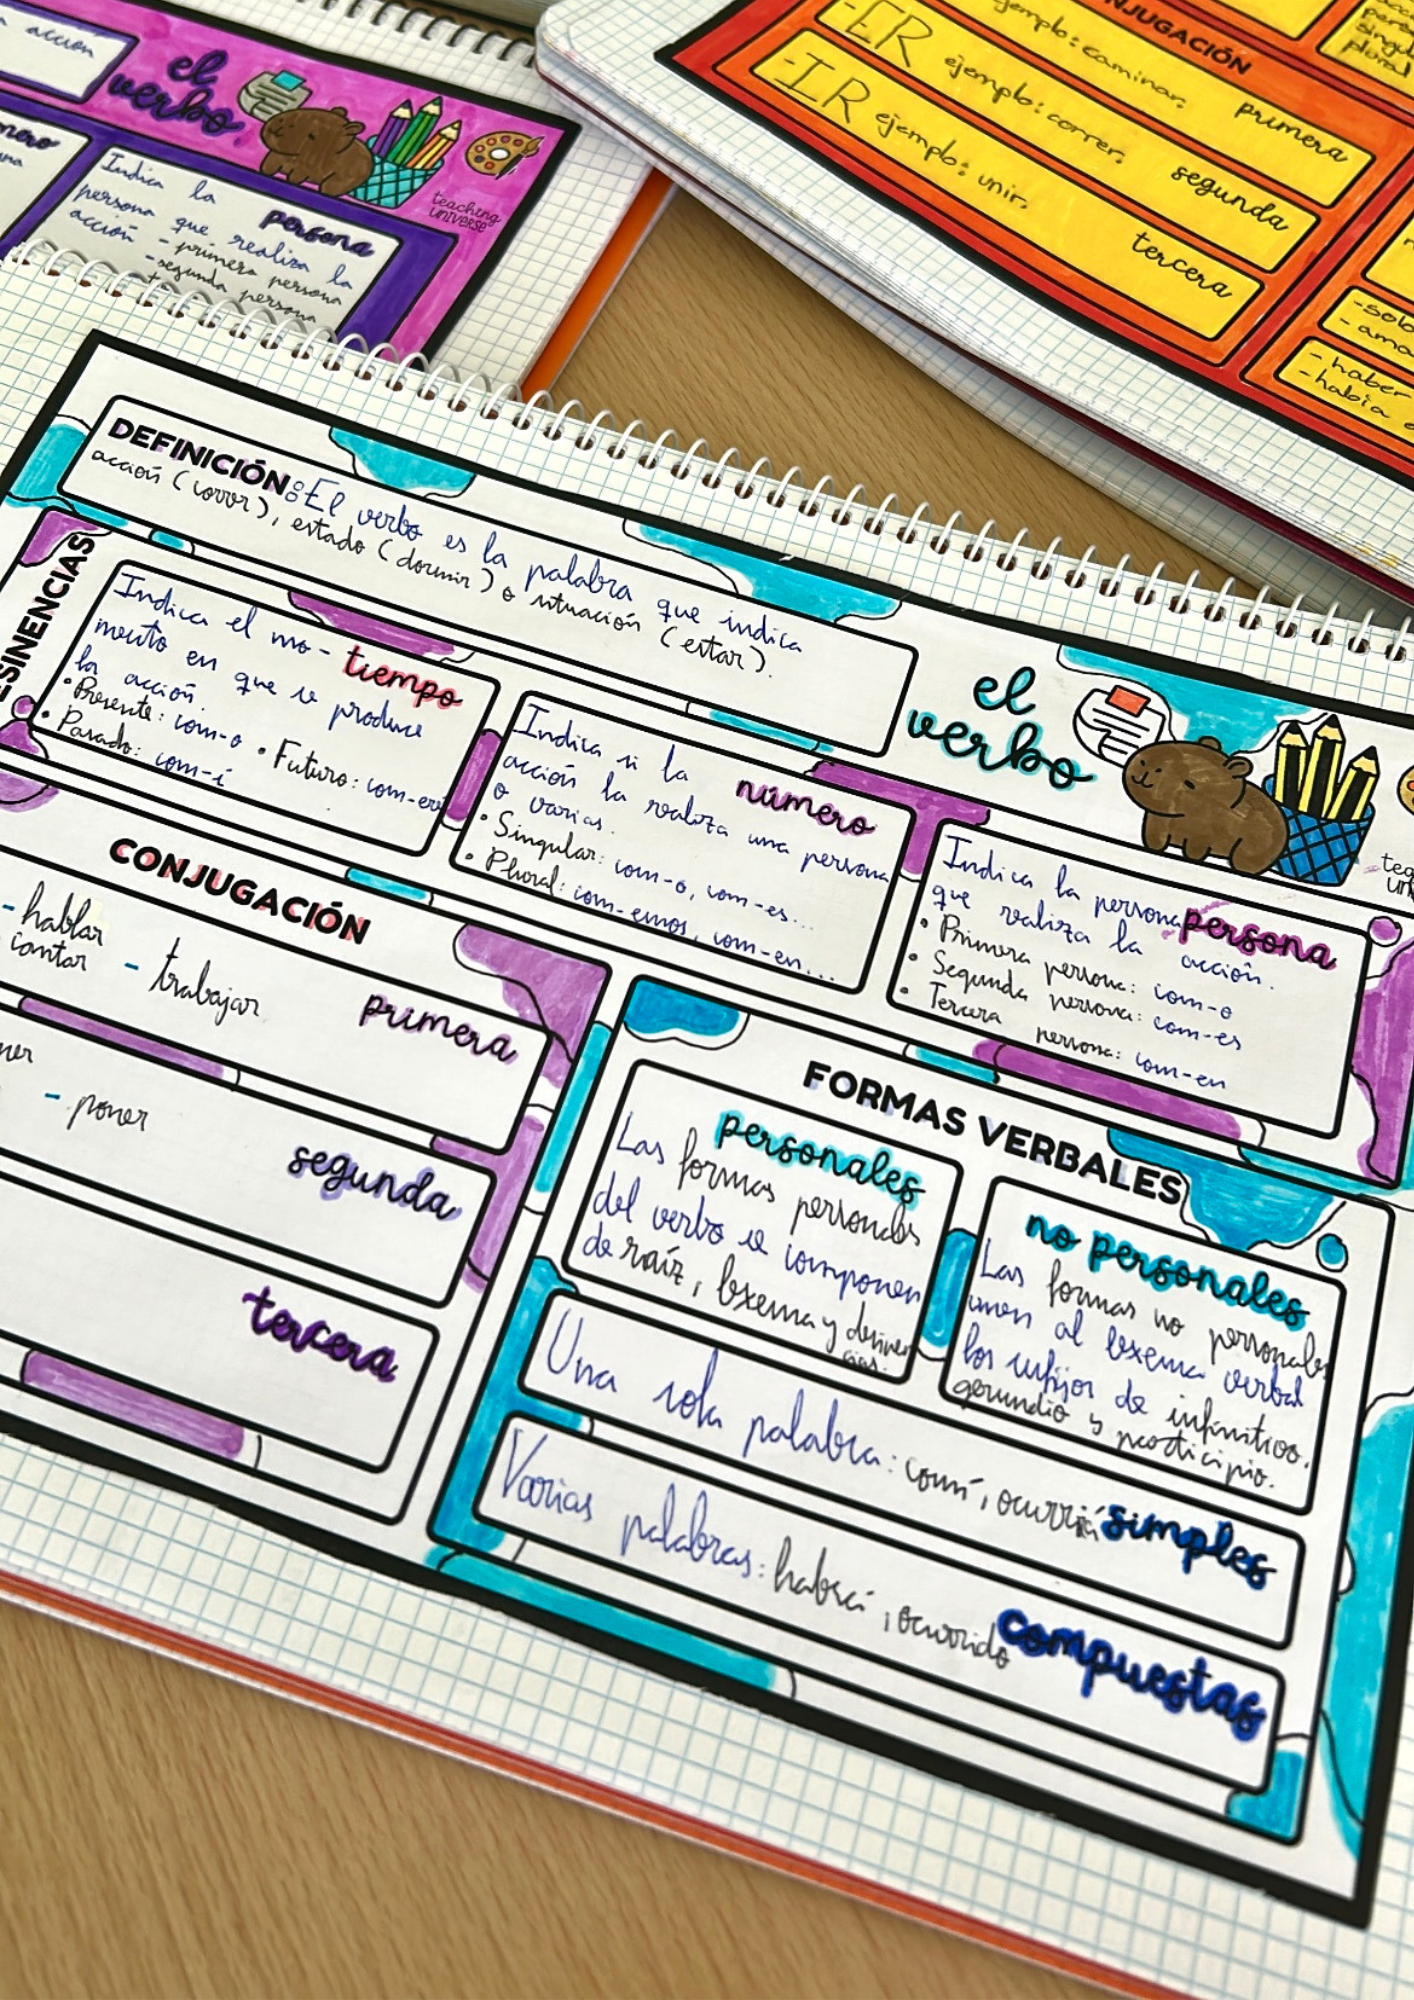 acción
el
verbo
Indica la
persona
persona que realiza la
acción - primera persona
- segunda persona
teaching
UNIVERSE
CONJUGACIÓN
-ER
ejemplo: caminar.
primera
-IR
ejemplo: correr.
segunda
ejemplo: unir.
tercera
singular
plural
- haber
- había
DEFINICIÓN: El verbo es la palabra que indica
acción (correr), estado (dormir) o situación (estar).
el
verbo
Indica el mo-
tiempo
mento en que se produce
la acción.
• Presente: com-o • Futuro: com-eré
• Pasado: com-í
Indica si la
número
acción la realiza una persona
o varias.
• Singular: com-o, com-es...
• Plural: com-emos, com-en...
Indica la persona
persona
que realiza la acción.
• Primera persona: com-o
• Segunda persona: com-es
• Tercera persona: com-en
CONJUGACIÓN
- hablar
- cantar - trabajar
primera
- poner
segunda
tercera
FORMAS VERBALES
personales
Las formas personales
del verbo se componen
de raíz, lexema y desinen
cias.
no personales
Las formas no personales
unen al lexema verbal
los sufijos de infinitivo.
gerundio y participio.
Una sola palabra: comí, ocurrirá
simples
Varias palabras: habrá, ocurrido
compuestas